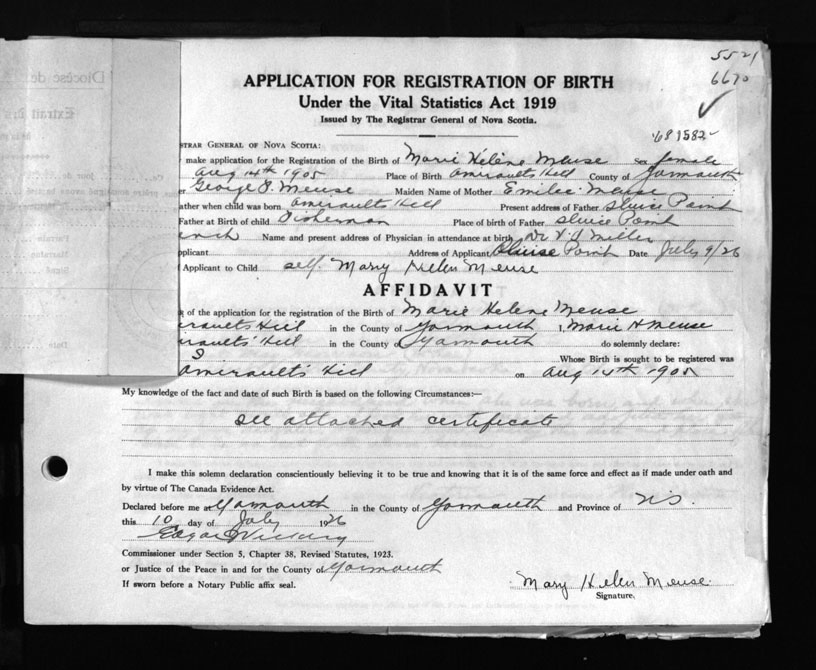 5521
6670
68 1582
Diocèse de
Extrait
APPLICATION FOR REGISTRATION OF BIRTH
Under the Vital Statistics Act 1919
Issued by The Registrar General of Nova Scotia.
STRAR GENERAL OF NOVA SCOTIA:
make application for the Registration of the Birth of Marie Helène Meuse Sex female
Aug 14th 1905 Place of Birth Amiraults Hill County of Yarmouth
George S. Meuse Maiden Name of Mother Emilie Meuse
ather when child was born Amiraults Hill Present address of Father Sluice Point
Father at Birth of child Fisherman Place of birth of Father Sluice Point
ench Name and present address of Physician in attendance at birth Dr V. A Miller
pplicant Address of Applicant Sluice Point Date July 9/26
Applicant to Child self. Mary Helen Meuse
AFFIDAVIT
of the application for the registration of the Birth of Marie Helene Meuse
iraults Hill in the County of Yarmouth I, Marie H Meuse
iraults' Hill in the County of Yarmouth do solemnly declare:
S Whose Birth is sought to be registered was
Amirault's Hill on Aug 14th 1905
My knowledge of the fact and date of such Birth is based on the following Circumstances:—
see attached certificate
I make this solemn declaration conscientiously believing it to be true and knowing that it is of the same force and effect as if made under oath and
by virtue of The Canada Evidence Act.
Declared before me at Yarmouth in the County of Yarmouth and Province of N.S.
this 10 day of July 1926
Edgar Vickery
Commissioner under Section 5, Chapter 38, Revised Statutes, 1923.
or Justice of the Peace in and for the County of Yarmouth
If sworn before a Notary Public affix seal.
Mary Helen Meuse
Signature.